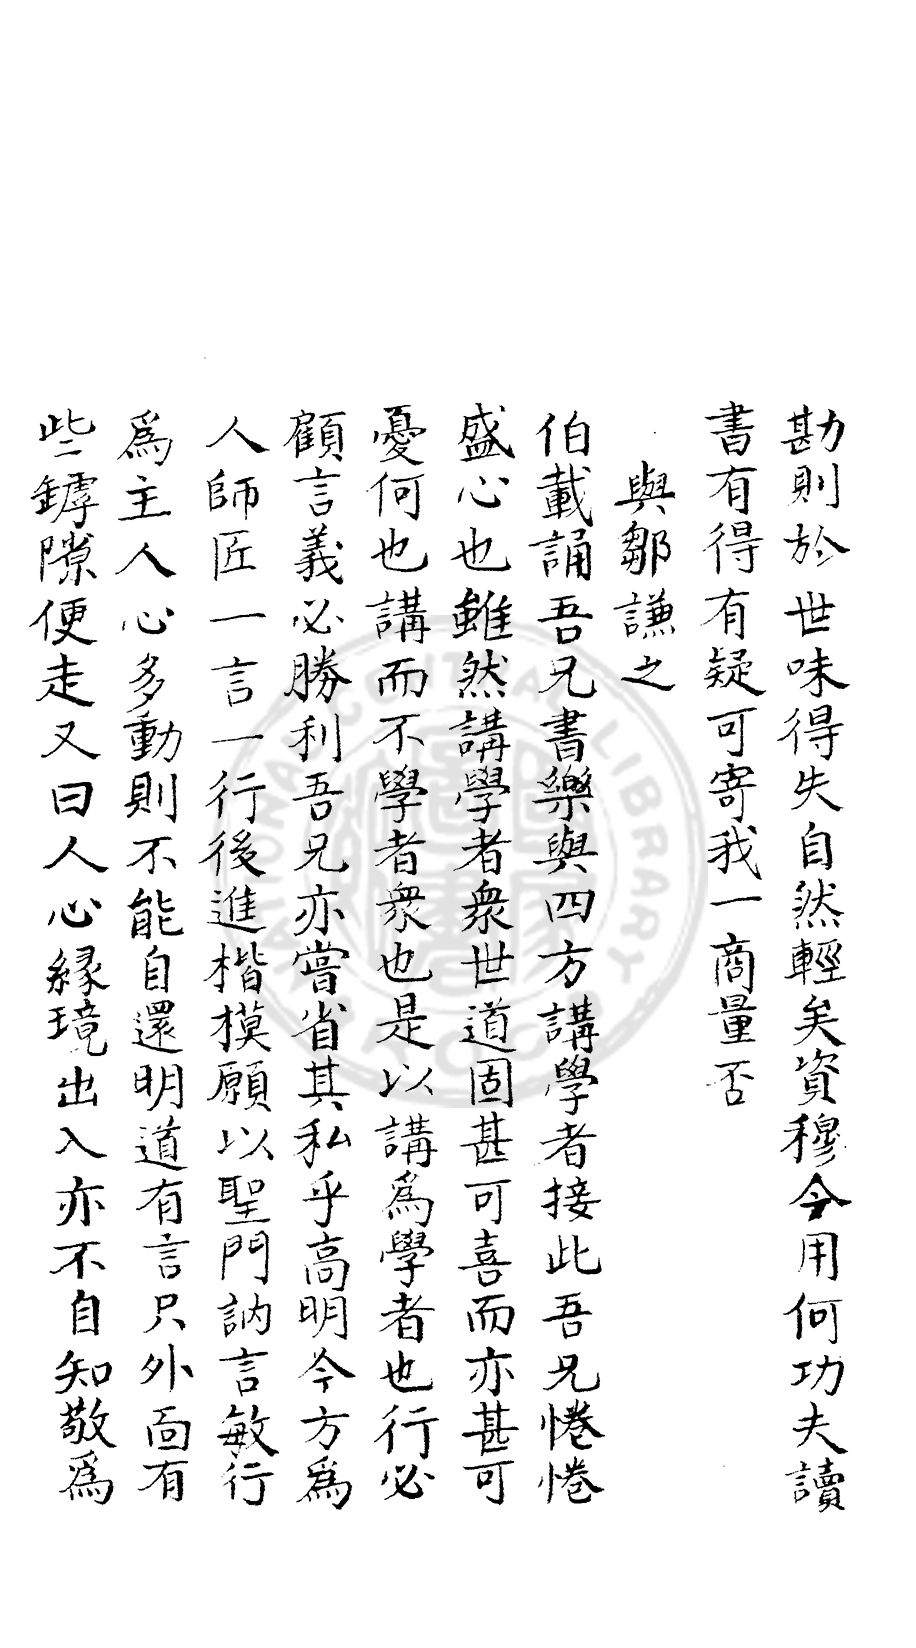 勘則於世味得失自然輕矣資穆今用何功夫讀
書有得有疑可寄我一商量否
與鄒謙之
伯載誦吾兄書樂與四方講學者接此吾兄惓惓
盛心也雖然講學者衆世道固甚可喜而亦甚可
憂何也講而不學者衆也是以講爲學者也行必
顧言義必勝利吾兄亦嘗省其私乎高明今方爲
人師匠一言一行後進楷模願以聖門訥言敏行
爲主人心多動則不能自還明道有言只外面有
些罅隙便走又曰人心緣境出入亦不自知敬爲
NATIONAL CENTRAL LIBRARY